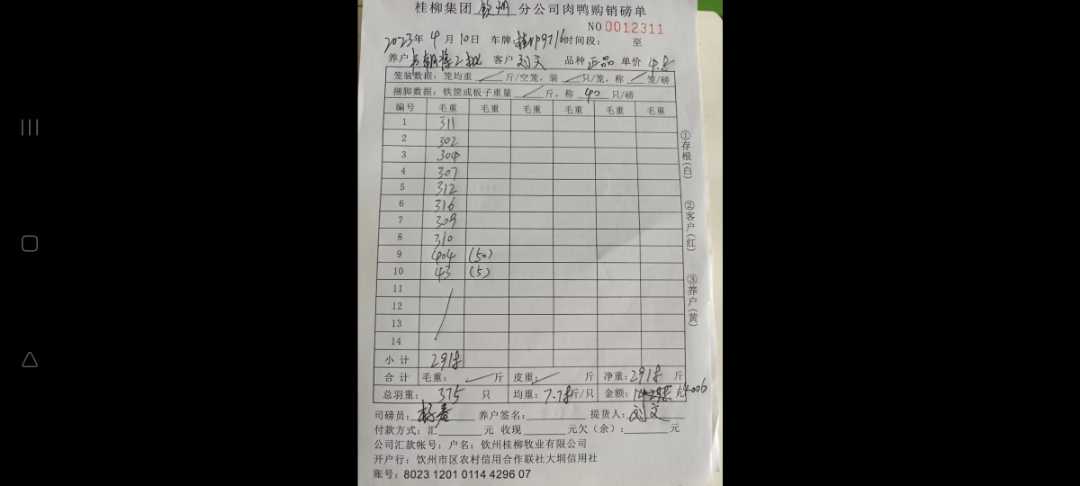 桂柳集团 钦州 分公司肉鸭购销磅单
NO 0012311
2023年 4月 10日 车牌 桂 时间段: 至
养户 客户 刘文 品种 正品 单价 4.8
笼装数据: 笼均重 斤/空笼, 装 只/笼, 称 笼/磅
捆脚数据: 铁筐或板子重量 斤, 称 40 只/磅
编号 毛重 毛重 毛重 毛重 毛重 毛重
1 311
2 302
3 304
4 307
5 312
6 316
7 309
8 310
9 404 (50)
10 43 (5)
11
12
13
14
小计 2918
合计 毛重: 斤 皮重: 斤 净重: 2918 斤
总羽重: 375 只 均重: 7.78斤/只 金额: 14006
司磅员: 养户签名: 提货人: 刘文
付款方式: 汇 元 收现 元欠(余): 元
公司汇款帐号: 户名: 钦州桂柳牧业有限公司
开户行: 钦州市区农村信用合作联社大垌信用社
账号: 8023 1201 0114 4296 07
①存根(白)
②客户(红)
③养户(黄)